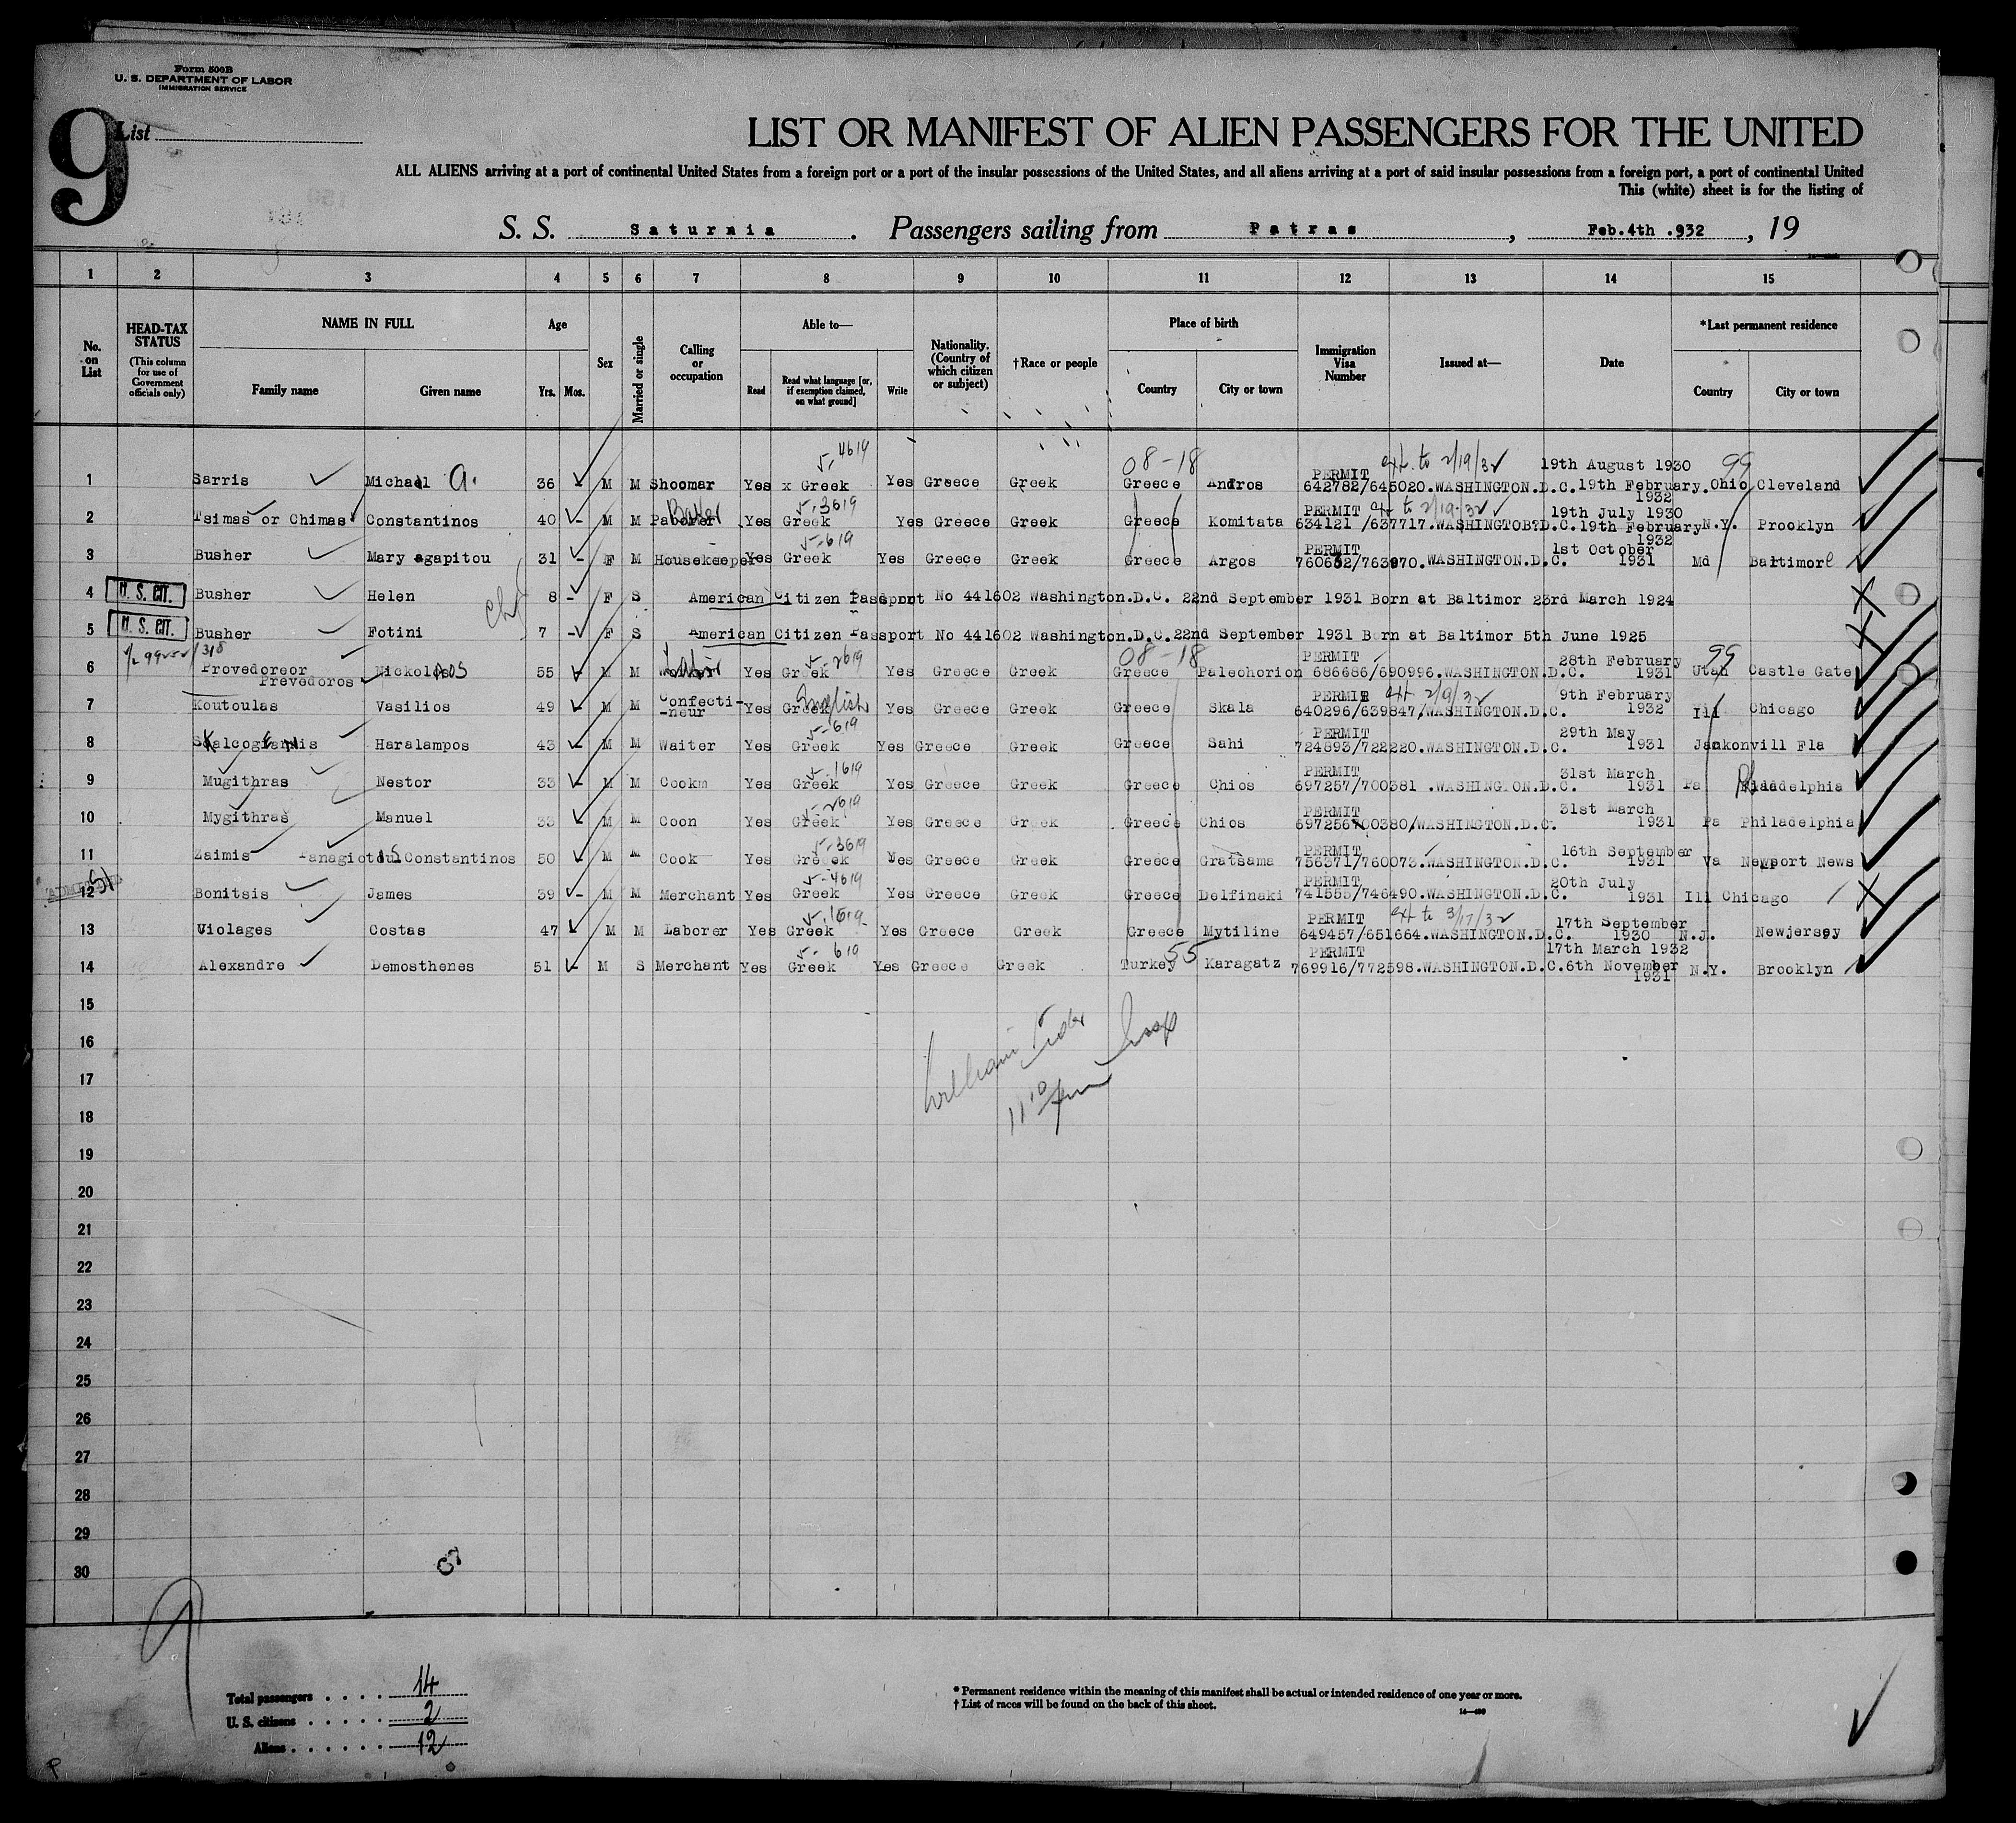 Form 500B
U. S. DEPARTMENT OF LABOR
IMMIGRATION SERVICE
9
List
LIST OR MANIFEST OF ALIEN PASSENGERS FOR THE UNITED
ALL ALIENS arriving at a port of continental United States from a foreign port or a port of the insular possessions of the United States, and all aliens arriving at a port of said insular possessions from a foreign port, a port of continental United
This (white) sheet is for the listing of
S. S. Saturnia . Passengers sailing from Patras , Feb.4th .932 , 19
1 2 3 4 5 6 7 8 9 10 11 12 13 14 15
No. on List
HEAD-TAX STATUS (This column for use of Government officials only)
NAME IN FULL Family name Given name
Age Yrs. Mos.
Sex
Married or single
Calling or occupation
Able to— Read Read what language [or, if exemption claimed, on what ground] Write
Nationality. (Country of which citizen or subject)
†Race or people
Place of birth Country City or town
Immigration Visa Number
Issued at—
Date
*Last permanent residence Country City or town
5-4619 08-18 PERMIT ext. to 2/19/32 19th August 1930 99
1 Sarris Michael A. 36 - M M Shoomar Yes x Greek Yes Greece Greek Greece Andros 642782/645020.WASHINGTON.D.C. 19th February. 1932 Ohio Cleveland
Baker 5-3619 PERMIT ext to 2/19-32 19th July 1930
2 Tsimas or Chimas Constantinos 40 - M M Yes Greek Yes Greece Greek Greece Komitata 634121 /637717.WASHINGTOB?D.C. 19th February 1932 N.Y. Prooklyn
5-619 PERMIT 1st October
3 Busher Mary agapitou 31 - F M Housekeeper Yes Greek Yes Greece Greek Greece Argos 760632/763970.WASHINGTON.D.C. 1931 Md Baltimore
4 U. S. CIT. Busher Helen 8 - F S American Citizen Passport No 441602 Washington.D.C. 22nd September 1931 Born at Baltimor 23rd March 1924
5 U. S. CIT. Busher Fotini 7 - F S American Citizen Passport No 441602 Washington.D.C. 22nd September 1931 Born at Baltimor 5th June 1925
5-2619 08-18 PERMIT 28th February 99
6 Provedoreor Prevedoros Nickolaos 55 - M M Yes Greek Yes Greece Greek Greece Paleohorion 686686/690996.WASHINGTON.D.C. 1931 Utah Castle Gate
English PERMIT ext 2/9/32 9th February
7 Koutoulas Vasilios 49 - M M Confecti-neur Yes Greek Yes Greece Greek Greece Skala 640296/639847/WASHINGTON.D.C. 1932 Ill Chicago
5-619 PERMIT 29th May
8 Haralampos 43 - M M Waiter Yes Greek Yes Greece Greek Greece Sahi 724893/722220.WASHINGTON.D.C. 1931 Jackonvill Fla
5-1619 PERMIT 31st March
9 Mugithras Nestor 33 - M M Cookm Yes Greek Yes Greece Greek Greece Chios 697257/700381 .WASHINGTON.D.C. 1931 Pa Philadelphia
5-2619 PERMIT 31st March
10 Mygithras Manuel 33 - M M Coon Yes Greek Yes Greece Greek Greece Chios 697256/700380/WASHINGTON.D.C. 1931 Pa Philadelphia
5-3619 PERMIT 16th September
11 Zaimis Constantinos 50 - M M Cook Yes Greek Yes Greece Greek Greece Gratsama 756371/760073.WASHINGTON.D.C. 1931 Va Newport News
5-4619 PERMIT 20th July
12 Bonitsis James 39 - M M Merchant Yes Greek Yes Greece Greek Greece Delfinaki 741555/746490.WASHINGTON.D.C. 1931 Ill Chicago
5-1619 PERMIT ext to 3/17/32 17th September
13 Violages Costas 47 M M Laborer Yes Greek Yes Greece Greek Greece Mytiline 649457/651664.WASHINGTON.D.C. 1930 N.J. Newjersey
5-619 55 PERMIT 17th March 1932
14 Alexandre Demosthenes 51 - M S Merchant Yes Greek Yes Greece Greek Turkey Karagatz 769916/772598.WASHINGTON.D.C. 6th November 1931 N.Y. Brooklyn
15
16
17
18
19
20
21
22
23
24
25
26
27
28
29
30
9
Total passengers . . . . 14
U. S. citizens . . . . . 2
Aliens . . . . . . 12
* Permanent residence within the meaning of this manifest shall be actual or intended residence of one year or more.
† List of races will be found on the back of this sheet.